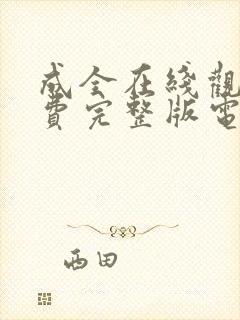 成全在綫觀
費完整版電
西田